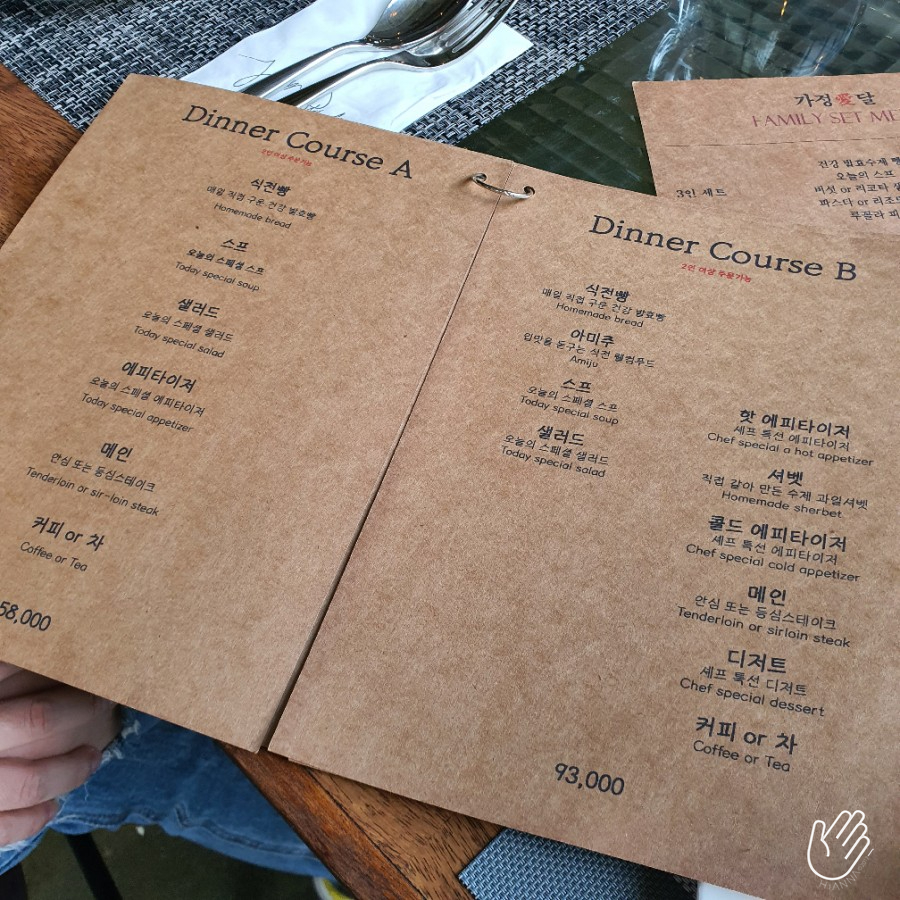 Dinner Course A
2인 이상 주문가능
식전빵
매일 직접 구운 건강 발효빵
Homemade bread
스프
오늘의 스페셜 스프
Today special soup
샐러드
오늘의 스페셜 샐러드
Today special salad
에피타이저
오늘의 스페셜 에피타이저
Today special appetizer
메인
안심 또는 등심스테이크
Tenderloin or sir-loin steak
커피 or 차
Coffee or Tea
58,000
Dinner Course B
2인 이상 주문가능
식전빵
매일 직접 구운 건강 발효빵
Homemade bread
아미쥬
입맛을 돋구는 식전 웰컴푸드
Amiju
스프
오늘의 스페셜 스프
Today special soup
샐러드
오늘의 스페셜 샐러드
Today special salad
핫 에피타이저
셰프 특선 에피타이저
Chef special a hot appetizer
셔벳
직접 갈아 만든 수제 과일셔벳
Homemade sherbet
콜드 에피타이저
셰프 특선 에피타이저
Chef special cold appetizer
메인
안심 또는 등심스테이크
Tenderloin or sirloin steak
디저트
셰프 특선 디저트
Chef special dessert
커피 or 차
Coffee or Tea
93,000
가정愛달
FAMILY SET ME
3인 세트
건강 발효수제 빵
오늘의 스프
버섯 or 리코타 샐
파스타 or 리조또
루꼴라 피
HIANNA